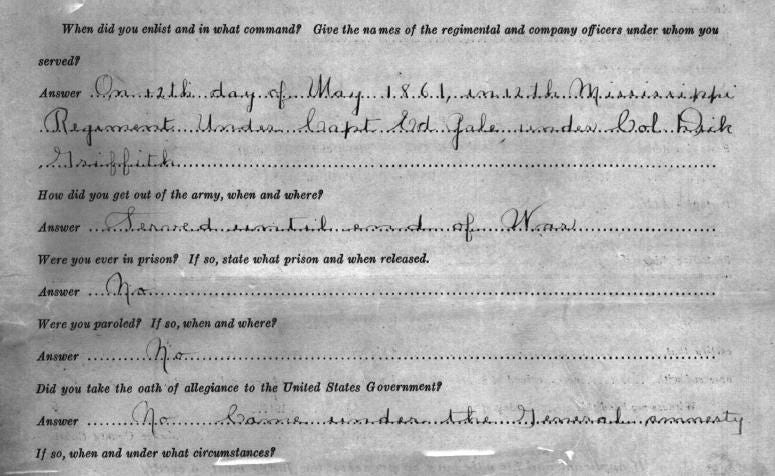 When did you enlist and in what command? Give the names of the regimental and company officers under whom you
served?
Answer On 12th day of May 1861, in 12th Mississippi
Regiment Under Capt Ed Gale under Col Dick
Griffith
How did you get out of the army, when and where?
Answer Served until end of War
Were you ever in prison? If so, state what prison and when released.
Answer No
Were you paroled? If so, when and where?
Answer No
Did you take the oath of allegiance to the United States Government?
Answer No Came under the General amnesty
If so, when and under what circumstances?